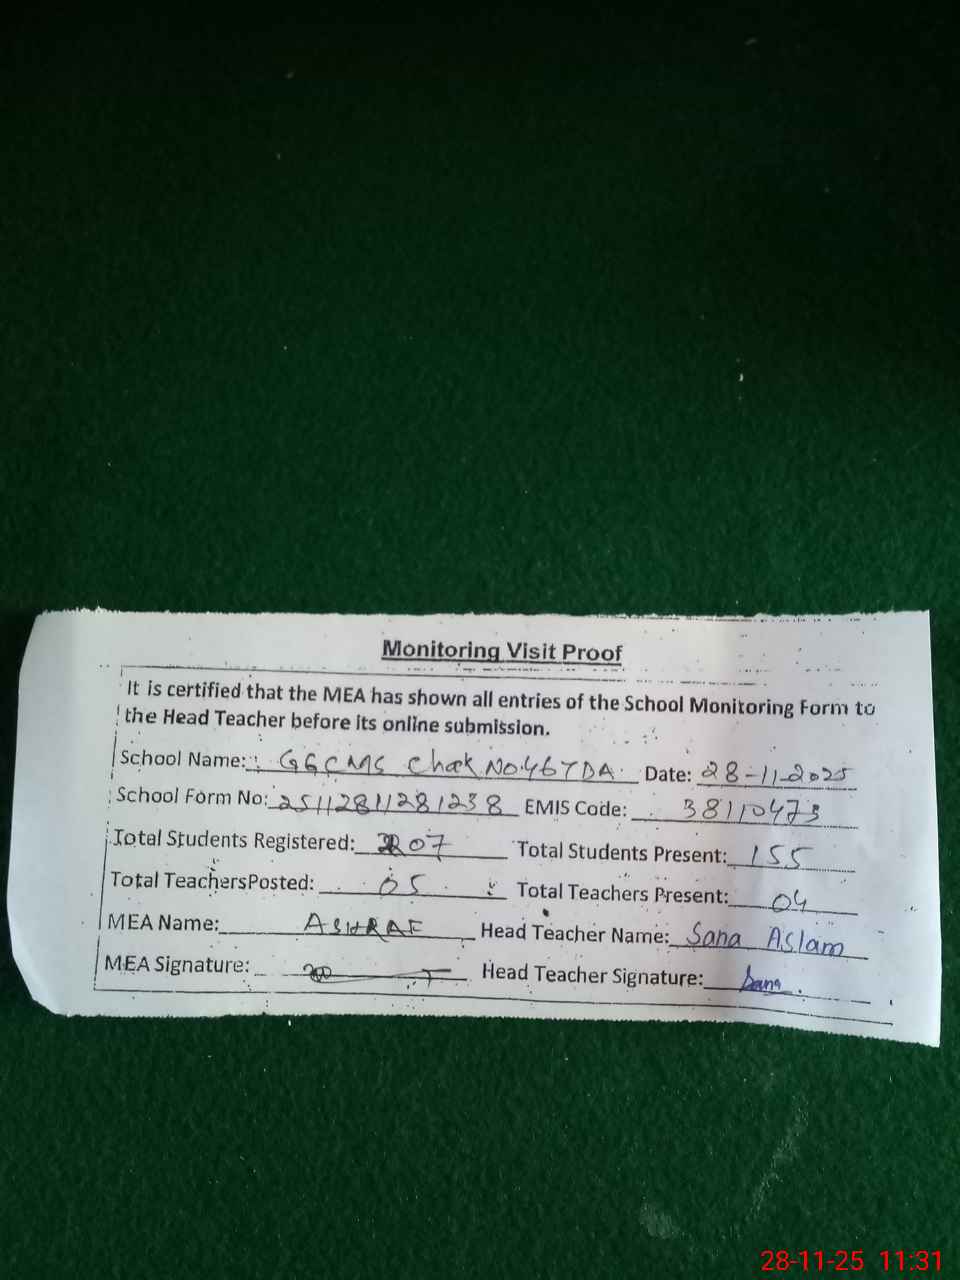 Monitoring Visit Proof
It is certified that the MEA has shown all entries of the School Monitoring Form to
the Head Teacher before its online submission.
School Name: GGCMS Chak No 467DA Date: 28-11-2025
School Form No: 25112811281238 EMIS Code: 38110473
Total Students Registered: 207 Total Students Present: 155
Total TeachersPosted: 05 Total Teachers Present: 04
MEA Name: ASHRAF Head Teacher Name: Sana Aslam
MEA Signature: Head Teacher Signature: Sana
28-11-25 11:31